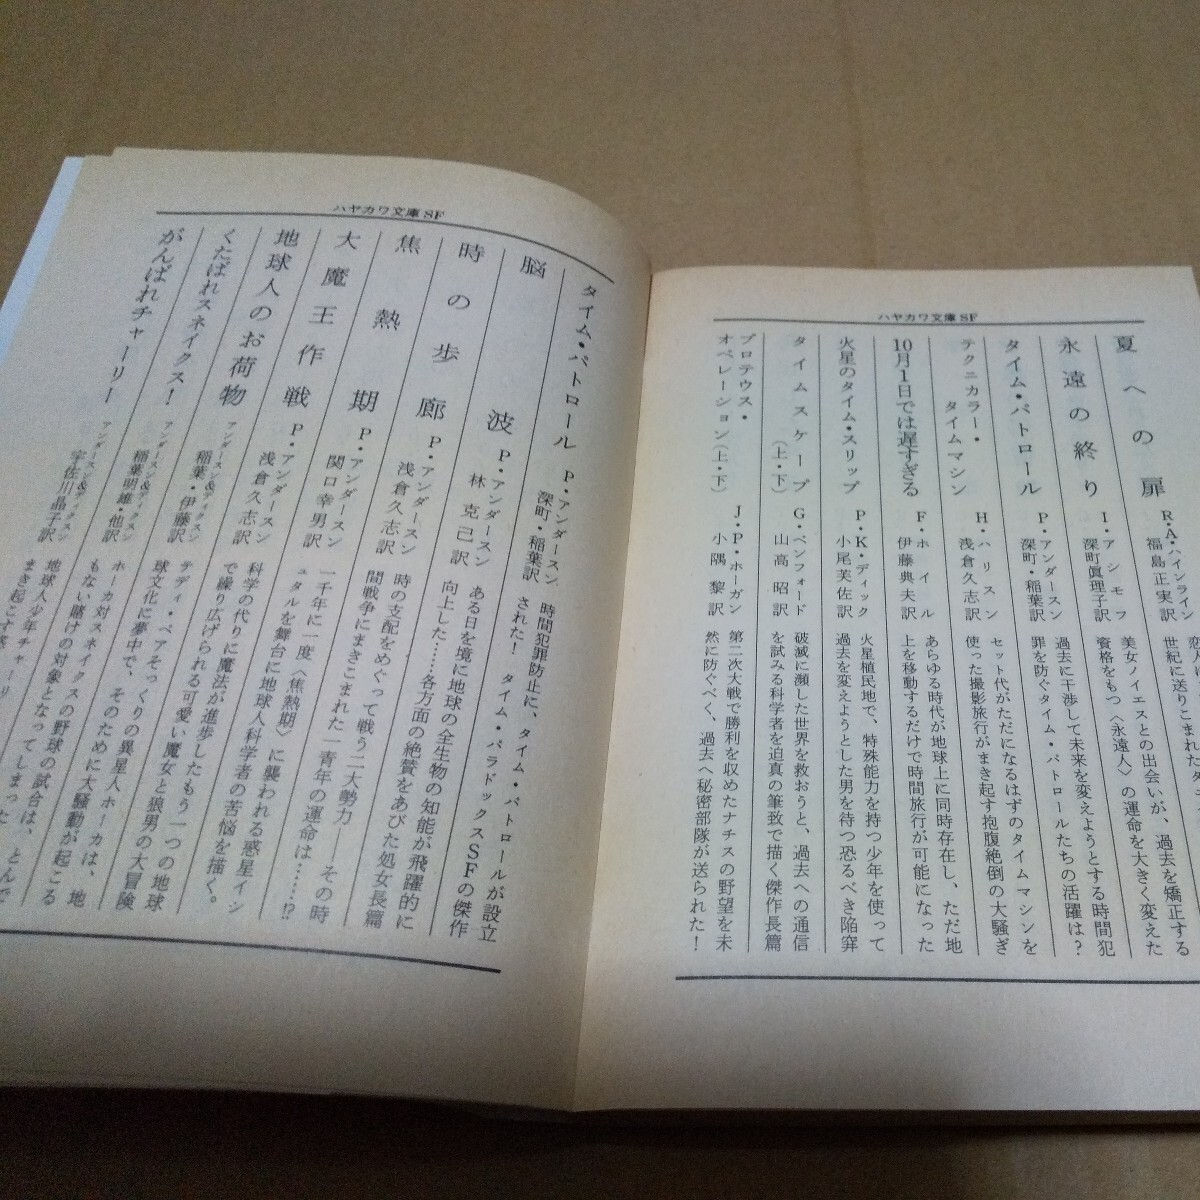 ハヤカワ文庫 SF
夏への扉
R・A・ハインライン
福島正実訳
世紀に送りこまれた
永遠の終り
I・アシモフ
深町眞理子訳
美女ノイエスとの出会いが、過去を矯正する
資格をもつ〈永遠人〉の運命を大きく変えた
タイム・パトロール
P・アンダースン
深町・稲葉訳
過去に干渉して未来を変えようとする時間犯
罪を防ぐタイム・パトロールたちの活躍は?
テクニカラー・
タイムマシン
H・ハリスン
浅倉久志訳
セット代がただになるはずのタイムマシンを
使った撮影旅行がまき起す抱腹絶倒の大騒ぎ
10月1日では遅すぎる
F・ホイル
伊藤典夫訳
あらゆる時代が地球上に同時存在し、ただ地
上を移動するだけで時間旅行が可能になった
火星のタイム・スリップ
P・K・ディック
小尾芙佐訳
火星植民地で、特殊能力を持つ少年を使って
過去を変えようとした男を待つ恐るべき陥穽
タイムスケープ
(上・下)
G・ベンフォード
山高昭訳
破滅に瀕した世界を救おうと、過去への通信
を試みる科学者を迫真の筆致で描く傑作長篇
プロテウス・
オペレーション(上・下)
J・P・ホーガン
小隅黎訳
第二次大戦で勝利を収めたナチスの野望を未
然に防ぐべく、過去へ秘密部隊が送られた!
ハヤカワ文庫 SF
タイム・パトロール
P・アンダースン
深町・稲葉訳
時間犯罪防止に、タイム・パトロールが設立
された! タイム・パラドックスSFの傑作
脳波
P・アンダースン
林克己訳
ある日を境に地球の全生物の知能が飛躍的に
向上した……各方面の絶賛をあびた処女長篇
時の歩廊
P・アンダースン
浅倉久志訳
時の支配をめぐって戦う二大勢力——その時
間戦争にまきこまれた一青年の運命は……!?
焦熱期
P・アンダースン
関口幸男訳
一千年に一度〈焦熱期〉に襲われる惑星イシ
ュタルを舞台に地球人科学者の苦悩を描く。
大魔王作戦
P・アンダースン
浅倉久志訳
科学の代りに魔法が進歩したもう一つの地球
で繰り広げられる可愛い魔女と狼男の大冒険
地球人のお荷物
アンダースン&ディクスン
稲葉・伊藤訳
テディ・ベアそっくりの異星人ホーカは、地
球文化に夢中で、そのために大騒動が起こる
くたばれスネイクス!
アンダースン&ディクスン
稲葉明雄・他訳
ホーカ対スネイクスの野球の試合は、とんで
もない賭けの対象となってしまった
がんばれチャーリー
アンダースン&ディクスン
宇佐川晶子訳
地球人少年チャーリ
まき起こす